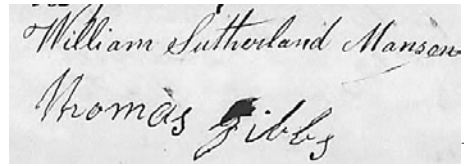 William Sutherland Manson
Thomas Gibbs